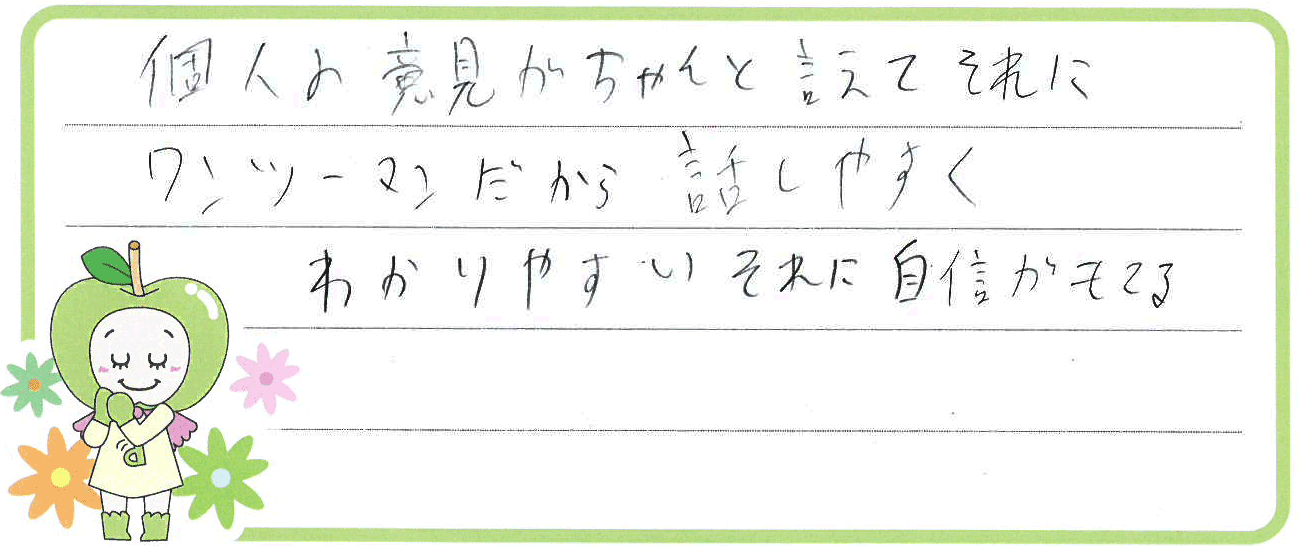 個人の意見がちゃんと言えてそれに
ワンツーマンだから話しやすく
わかりやすいそれに自信がもてる